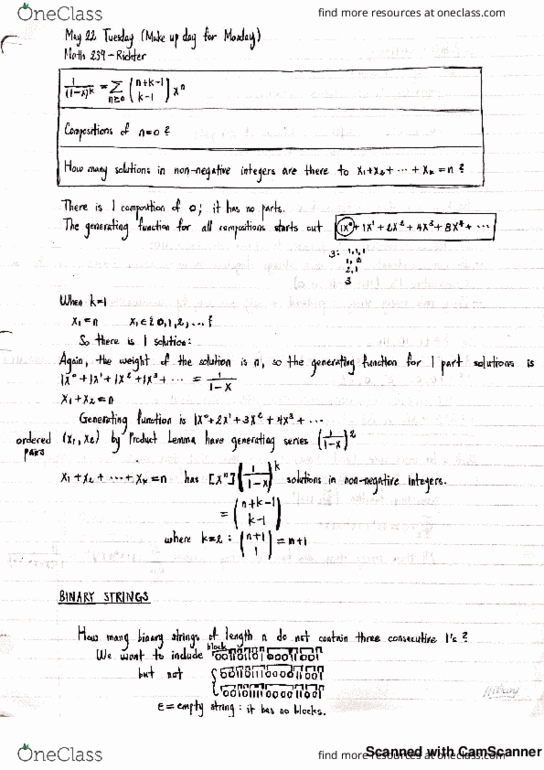 OneClass
find more resources at oneclass.com
May 22 Tuesday (Make up day for Monday)
Math 239 - Richter
1/(1-x)^k = Σ_{n≥0} (n+k-1 choose k-1) x^n
Compositions of n=0?
How many solutions in non-negative integers are there to x₁+x₂+ ⋯ +x_k = n?
There is 1 composition of 0; it has no parts.
The generating function for all compositions starts out 1x⁰+1x¹+2x²+4x³+8x⁴+ ⋯
3: 1,1,1
2,1
3
When k=1
x₁=n x₁∈{0,1,2,…}
So there is 1 solution:
Again, the weight of the solution is n, so the generating function for 1 part solutions is
1x⁰+1x¹+1x²+1x³+ ⋯ = 1/(1-x)
x₁+x₂=n
Generating function is 1x⁰+2x¹+3x²+4x³+ ⋯
ordered pairs (x₁, x₂) by Product Lemma have generating series (1/(1-x))²
x₁+x₂+ ⋯ +x_k=n has [x^n](1/(1-x))^k solutions in non-negative integers.
= (n+k-1 choose k-1)
where k=2: (n+1 choose 1) = n+1
BINARY STRINGS
How many binary strings of length n do not contain three consecutive 1's?
We want to include block
but not
ε = empty string: it has no blocks.
OneClass
Scanned with CamScanner
find more resources at oneclass.com